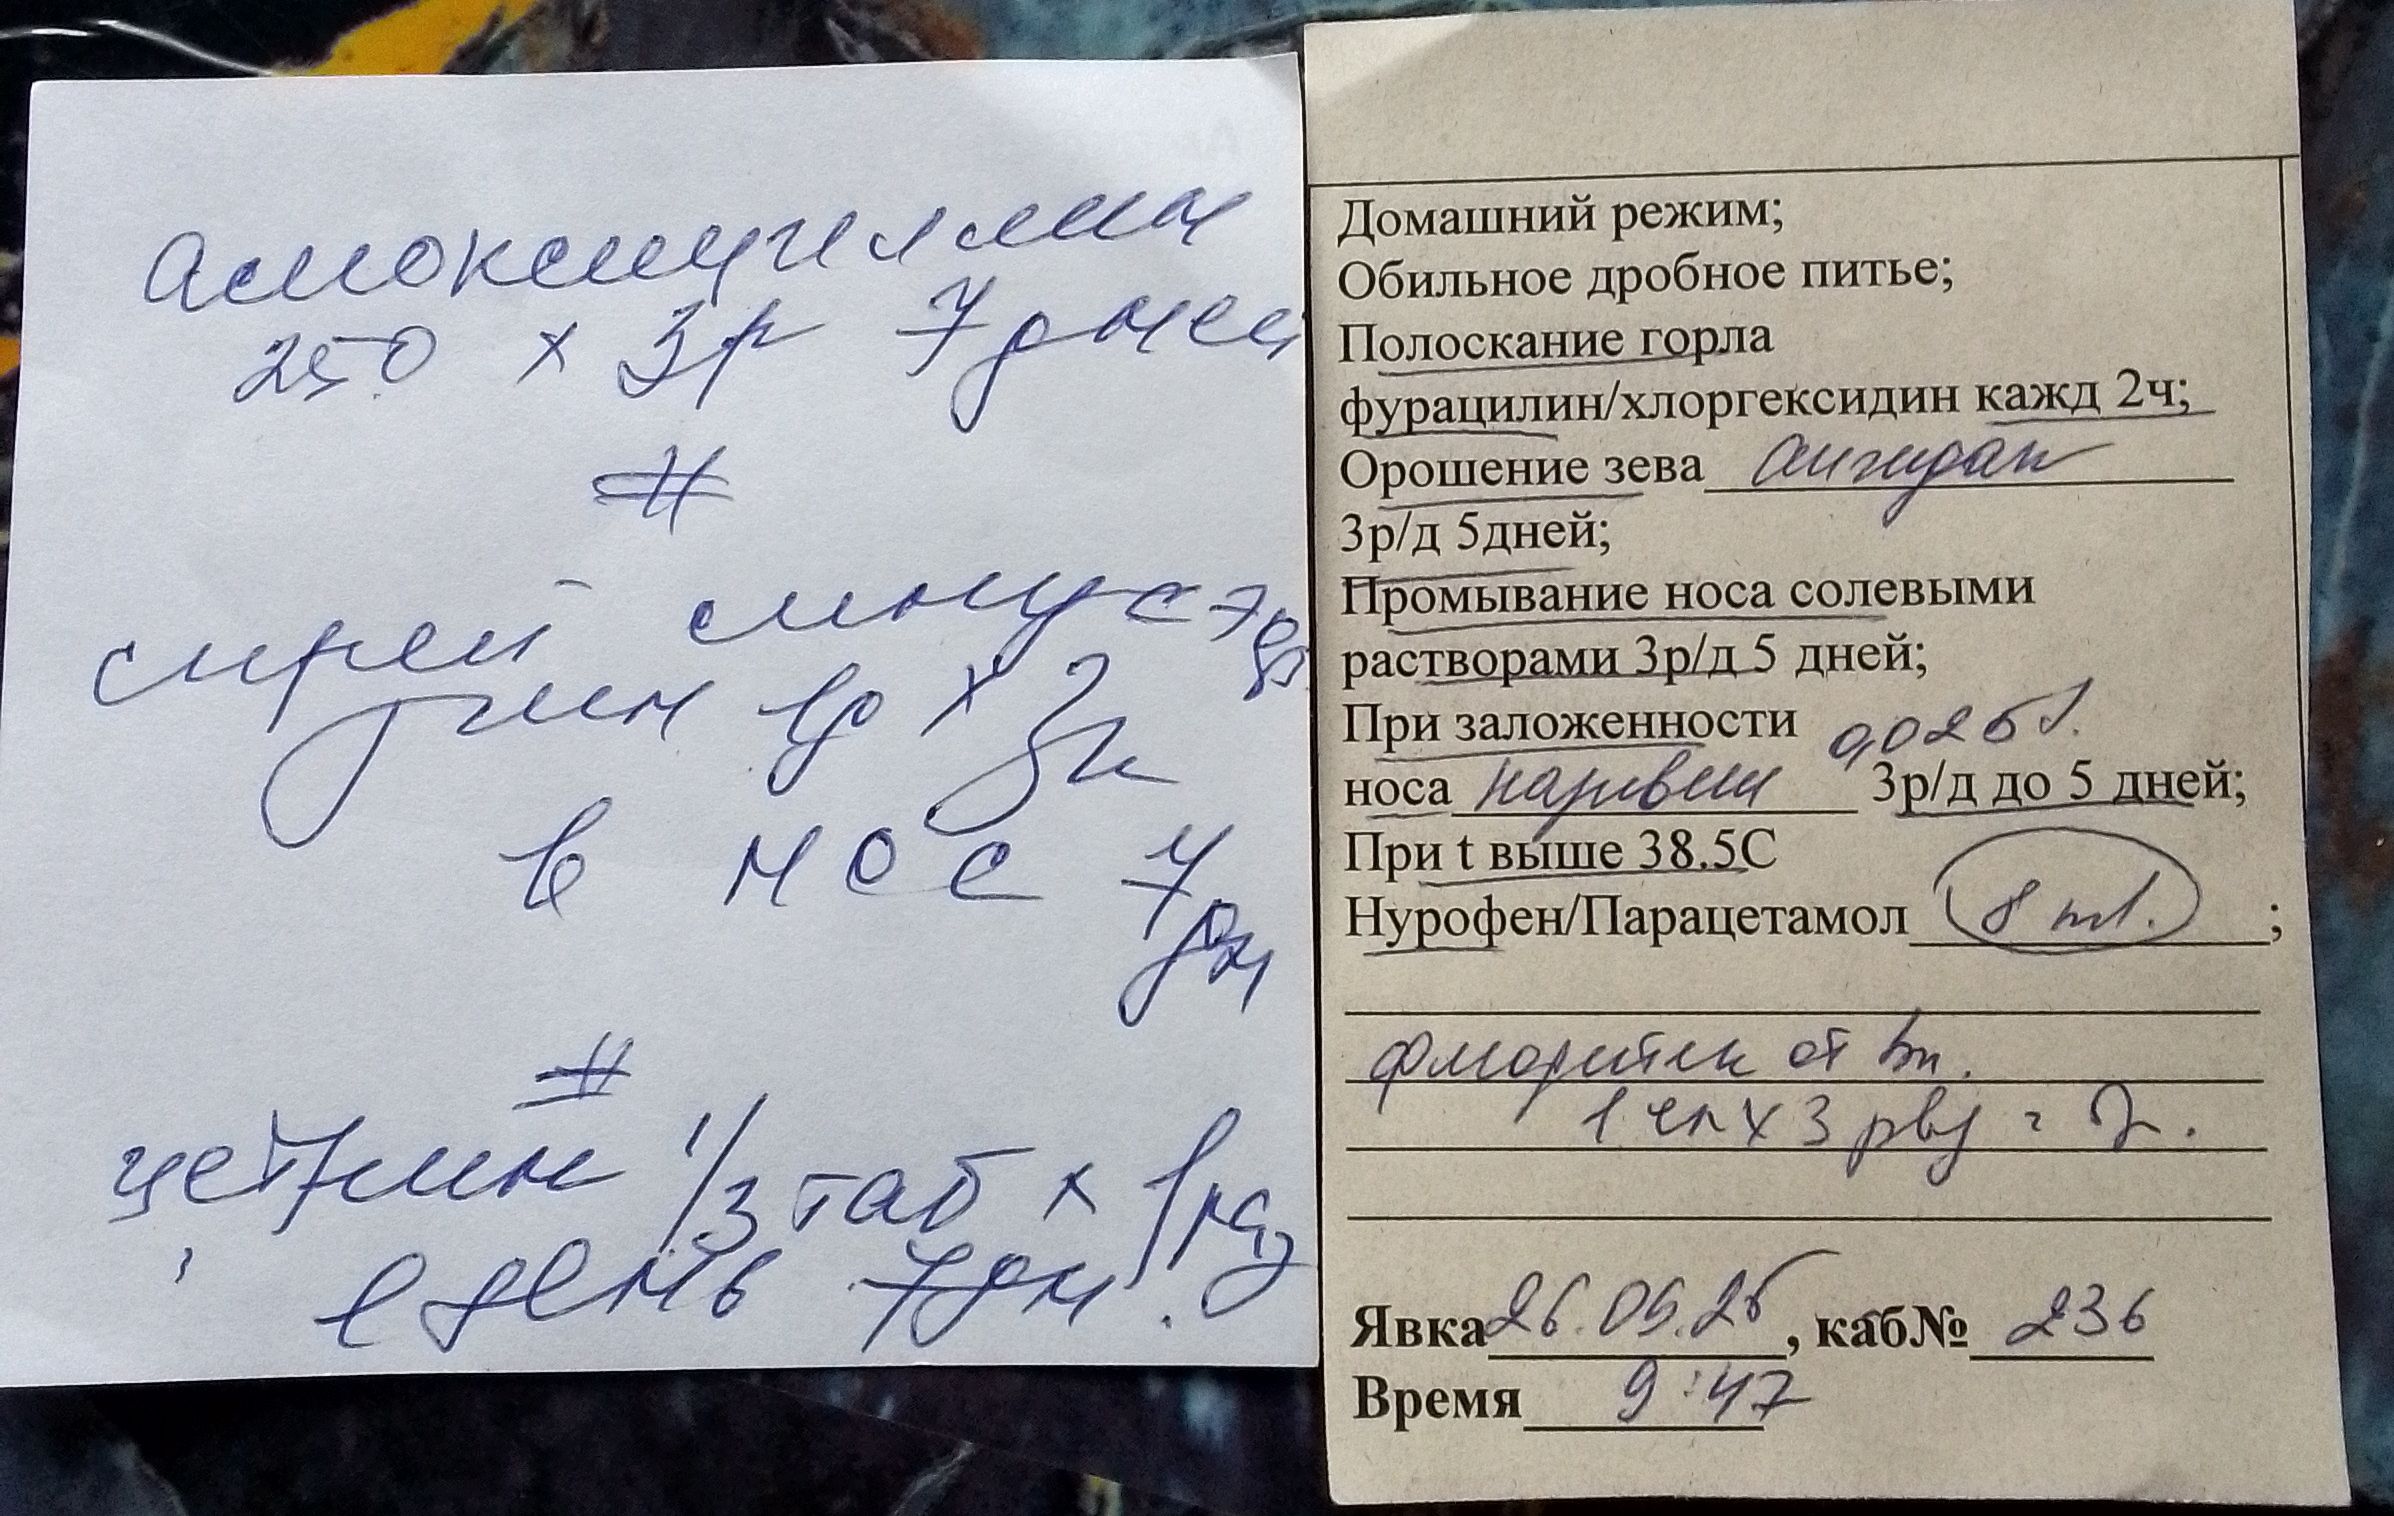 Амоксициллин
250 х 3р 7 дней
#
спрей
1р х 3
в нос 7
дн
#
цетрин 1/3 таб х 1 раз
в день 7 дн.
Домашний режим;
Обильное дробное питье;
Полоскание горла
фурацилин/хлоргексидин кажд 2ч;
Орошение зева ангидак
3р/д 5дней;
Промывание носа солевыми
растворами 3р/д 5 дней;
При заложенности 0,025%
носа називин 3р/д до 5 дней;
При t выше 38.5С
Нурофен/Парацетамол 8 мл.;
от
1 х 3
Явка 26.09.25, каб№ 236
Время 9:47